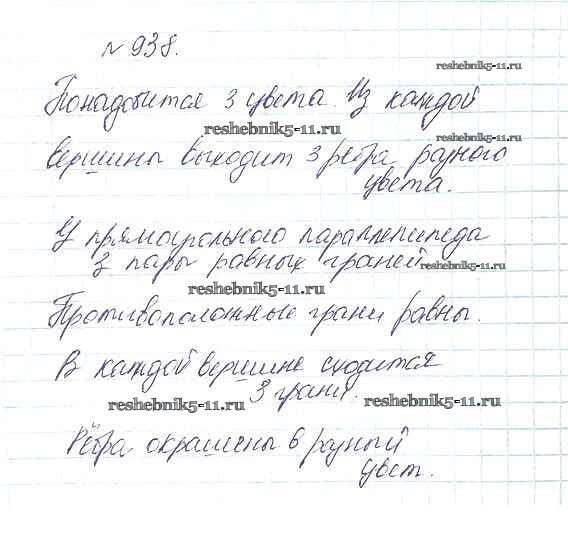 №938.
reshebnik5-11.ru
Понадобится 3 цвета. Из каждой
reshebnik5-11.ru
reshebnik5-11.ru
вершины выходит 3 ребра разного
цвета.
У прямоугольного параллепипеда
3 пары равных граней.
reshebnik5-11.ru
reshebnik5-11.ru
Противоположные грани равны.
В каждой вершине сходится
3 грани.
reshebnik5-11.ru
reshebnik5-11.ru
Рёбра окрашены в разный
цвет.